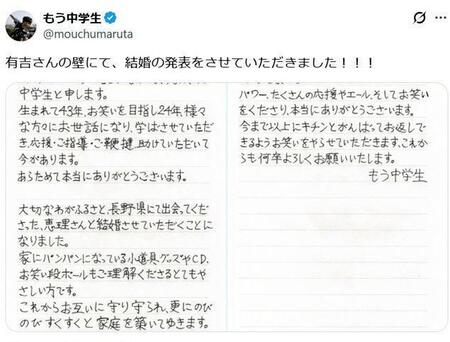 もう中学生
@mouchumaruta
有吉さんの壁にて、結婚の発表をさせていただきました！！！
中学生と申します。
生まれて43年、お笑いを目指し24年、様々
な方々にお世話になり、学ばさせていただ
き、応援・ご指導・ご鞭撻、助けていただいて
今があります。
あらためて本当にありがとうございます。
大切なわがふるさと、長野県にて出会ってくだ
さった、恵理さんと結婚させていただくことに
なりました。
家にパンパンになっている小道具、グッズやCD、
お笑い段ボールもご理解くださるとてもや
さしい方です。
これからお互いに守り守られ、更にのび
のびすくすくと家庭を築いてゆきます。
パワー、たくさんの応援やエール、そしてお笑い
をくださり、本当にありがとうございます。
今まで以上にキチンとがんばってお返しで
きるようお笑いをやらせていただきます、これから
も何卒よろしくお願いいたします。
もう中学生